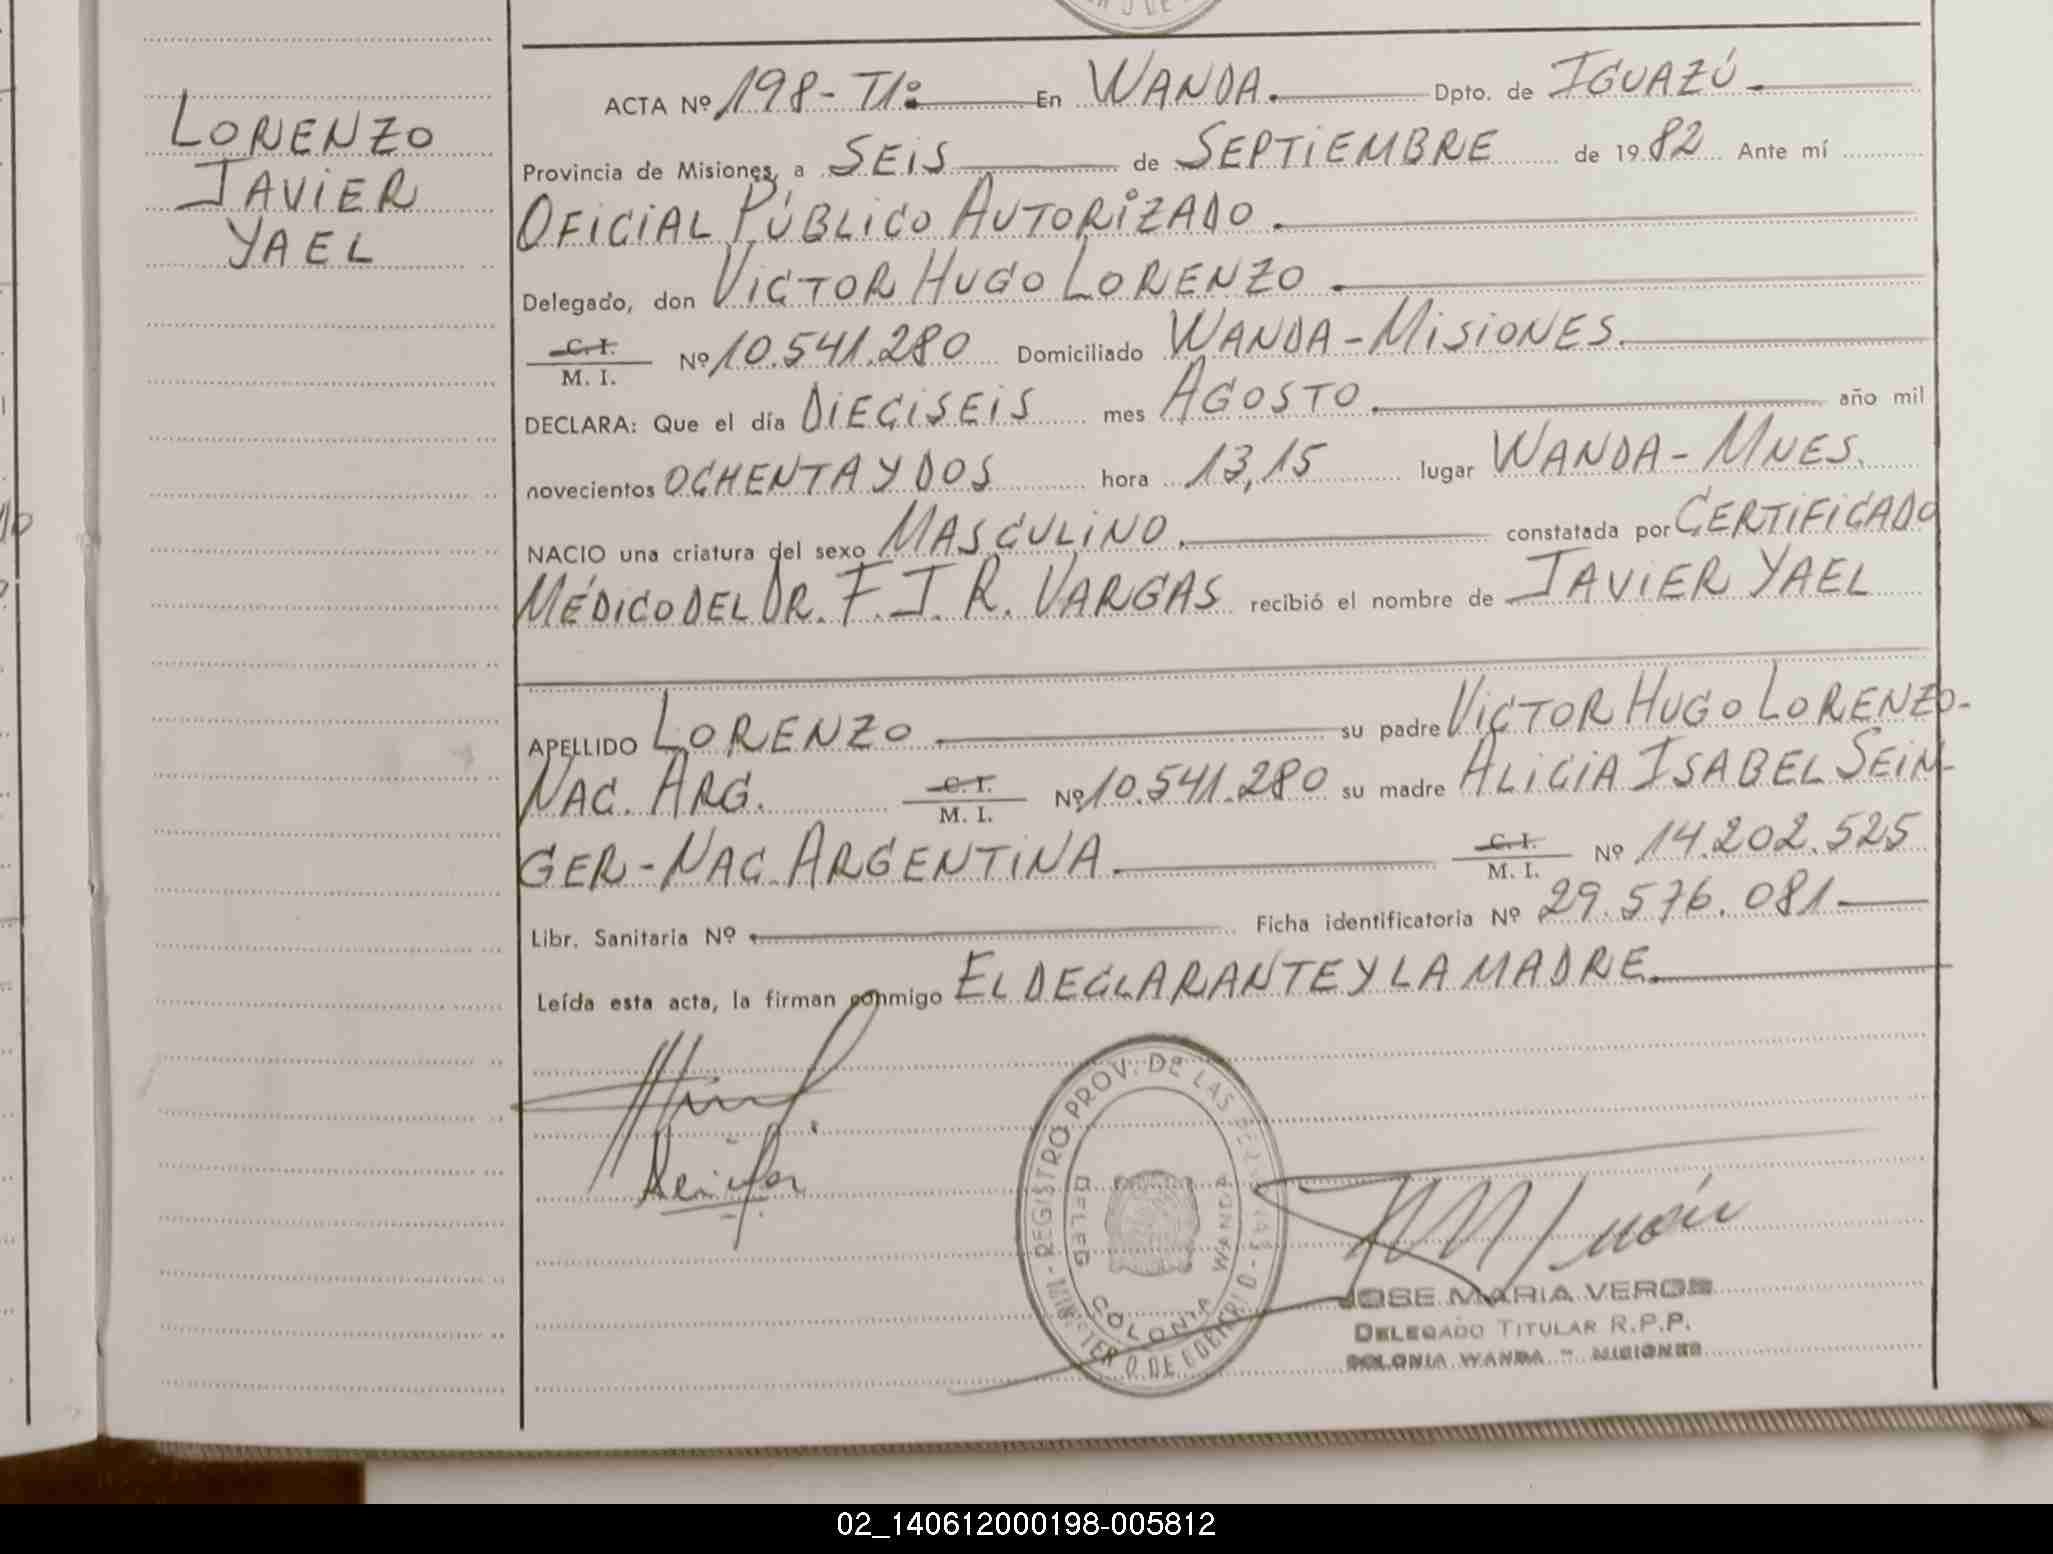 LORENZO
JAVIER
YAEL
ACTA Nº 198-T1º En WANDA. Dpto. de IGUAZÚ
Provincia de Misiones, a SEIS de SEPTIEMBRE de 1982 Ante mí
OFICIAL PÚBLICO AUTORIZADO.
Delegado, don VICTOR HUGO LORENZO
C. I.
M. I. Nº 10.541.280 Domiciliado WANDA-MISIONES.
DECLARA: Que el día DIECISEIS mes AGOSTO. año mil
novecientos OCHENTA Y DOS hora 13,15 lugar WANDA-MNES.
NACIO una criatura del sexo MASCULINO. constatada por CERTIFICADO
MÉDICO DEL DR. F.J.R. VARGAS recibió el nombre de JAVIER YAEL
APELLIDO LORENZO su padre VICTOR HUGO LORENZO-
NAC. ARG. C. I. M. I. Nº 10.541.280 su madre ALICIA ISABEL SEIN-
GER-NAC. ARGENTINA. C. I. M. I. Nº 14.202.525
Libr. Sanitaria Nº Ficha identificatoria Nº 29.576.081
Leída esta acta, la firman conmigo EL DECLARANTE Y LA MADRE.
REGISTRO PROV. DE LAS PERSONAS - MINISTERIO DE GOBIERNO
DELEG COLONIA WANDA
JOSE MARIA VERON
DELEGADO TITULAR R.P.P.
COLONIA WANDA - MISIONES
02_140612000198-005812